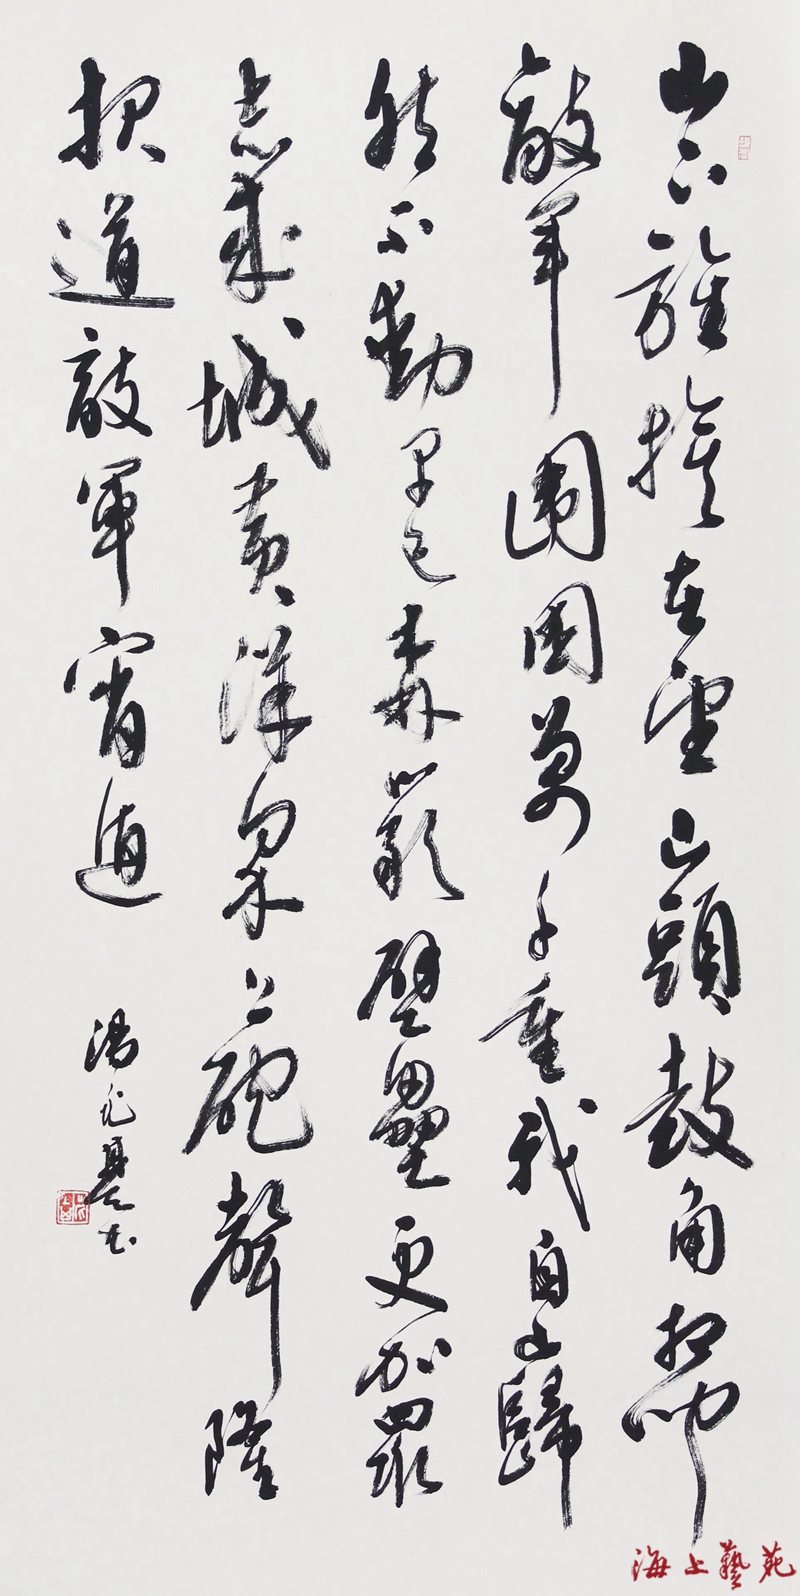 山下旌旗在望山頭鼓角相聞
敵軍圍困萬千重我自巋
然不動早已森嚴壁壘更加眾
志成城黃洋界上砲聲隆
报道敵軍宵遁
湯兆基书
海上藝苑